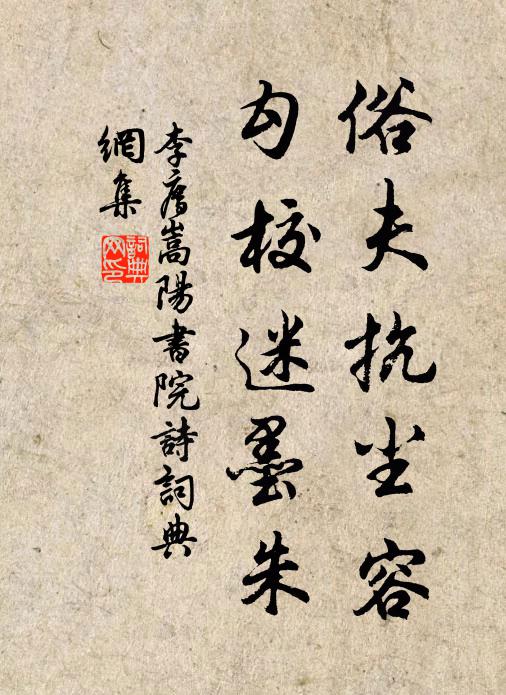 俗夫抗尘容
勾校迷墨朱
李廌嵩陽書院詩詞典
網集
詞典網印